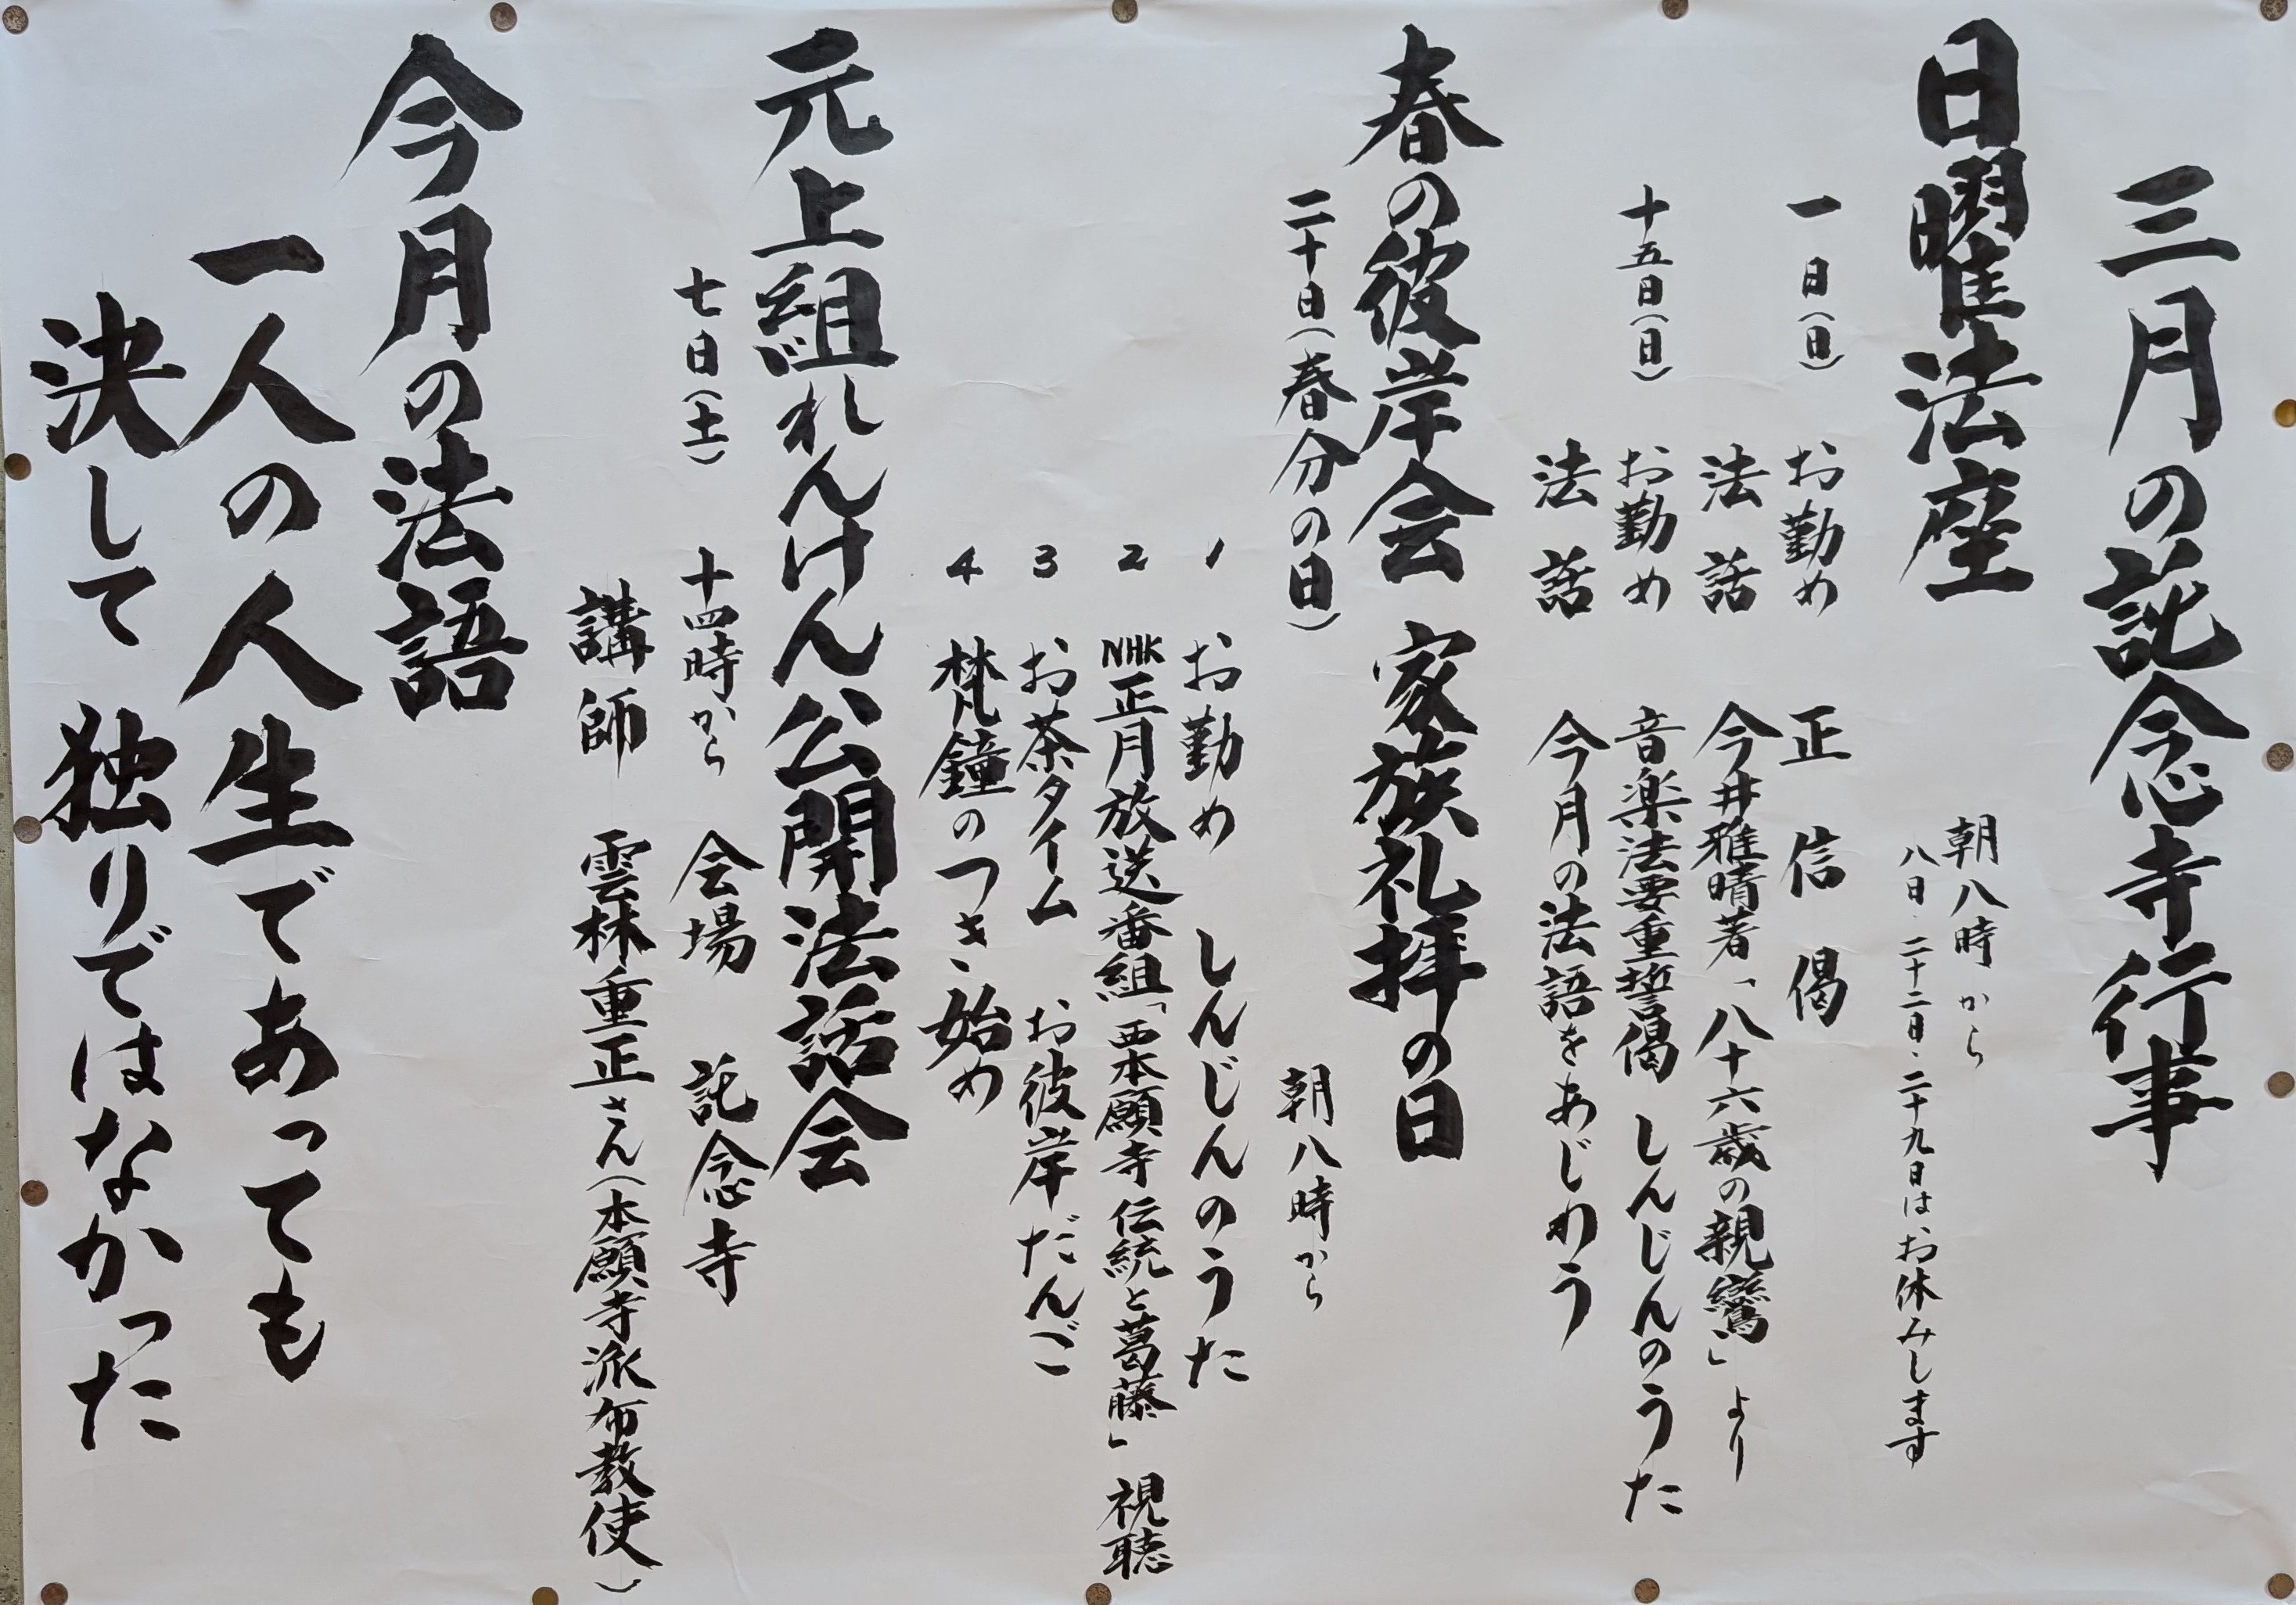 三月の託念寺行事
日曜法座
朝八時から
八日・二十二日・二十九日はお休みします
一日(日) お勤め 正信偈
法話 今井雅晴著「八十六歳の親鸞」より
十五日(日) お勤め 音楽法要重誓偈 しんじんのうた
法話 今月の法語をあじわう
春の彼岸会 家族礼拝の日
二十日(春分の日) 朝八時から
1 お勤め しんじんのうた
2 NHK正月放送番組「西本願寺 伝統と葛藤」視聴
3 お茶タイム お彼岸だんご
4 梵鐘のつき始め
元上組れんけん公開法話会
七日(土) 十四時から 会場 託念寺
講師 雲林重正さん(本願寺派布教使)
今月の法語
一人の人生であっても
決して 独りではなかった